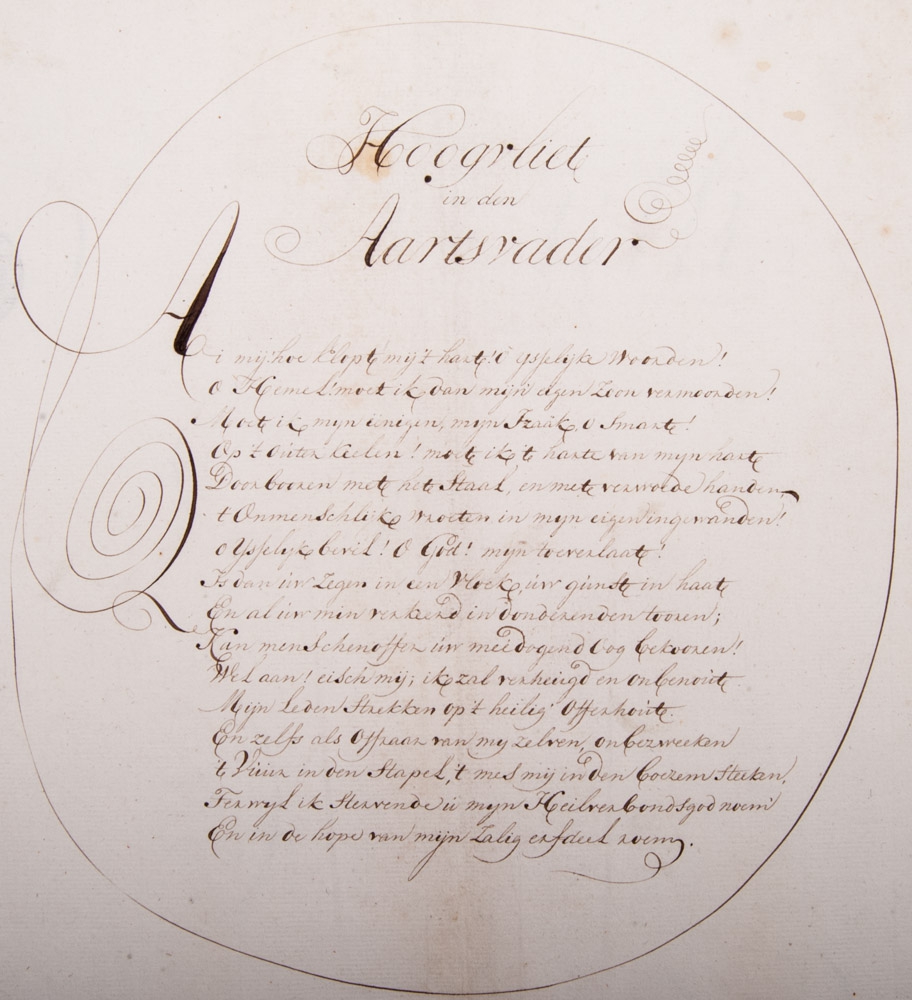 Hoogvliet
in den
Aartsvader
Ai mij hoe klopt mij 't hart! ô ysselyke woorden!
o Hemel! moet ik dan mijn eigen Zoon vermoorden!
Moet ik myn éénigen, mijn Izaäk, o Smart!
Op 't outer keelen! moet ik 't harte van mijn hart
Doorbooren met het Staal, en met verwoede handen,
't Onmenschlijk wroeten in mijn eigen ingewanden!
o Ysselyk bevel! O God! mijn toeverlaat!
Is dan úw Zegen in een Vloek, úw gúnst in haat
En al úw min verkeerd in donderenden tooren;
Kan menschenoffer úw meêdogend Oog bekooren!
Wel aan! eisch mij; ik zal verheugd en onbenoút
Mijn Leden Strekken op 't heilig Offerhoút
En zelfs als Offraar van my zelven, onbezweeken
't Vúúr in den Stapel, 't mes mij in den boezem Steeken,
Terwyl ik Stervende ú mijn Heilverbondsgod noem
En in de hope van mijn Zalig erfdeel roem.